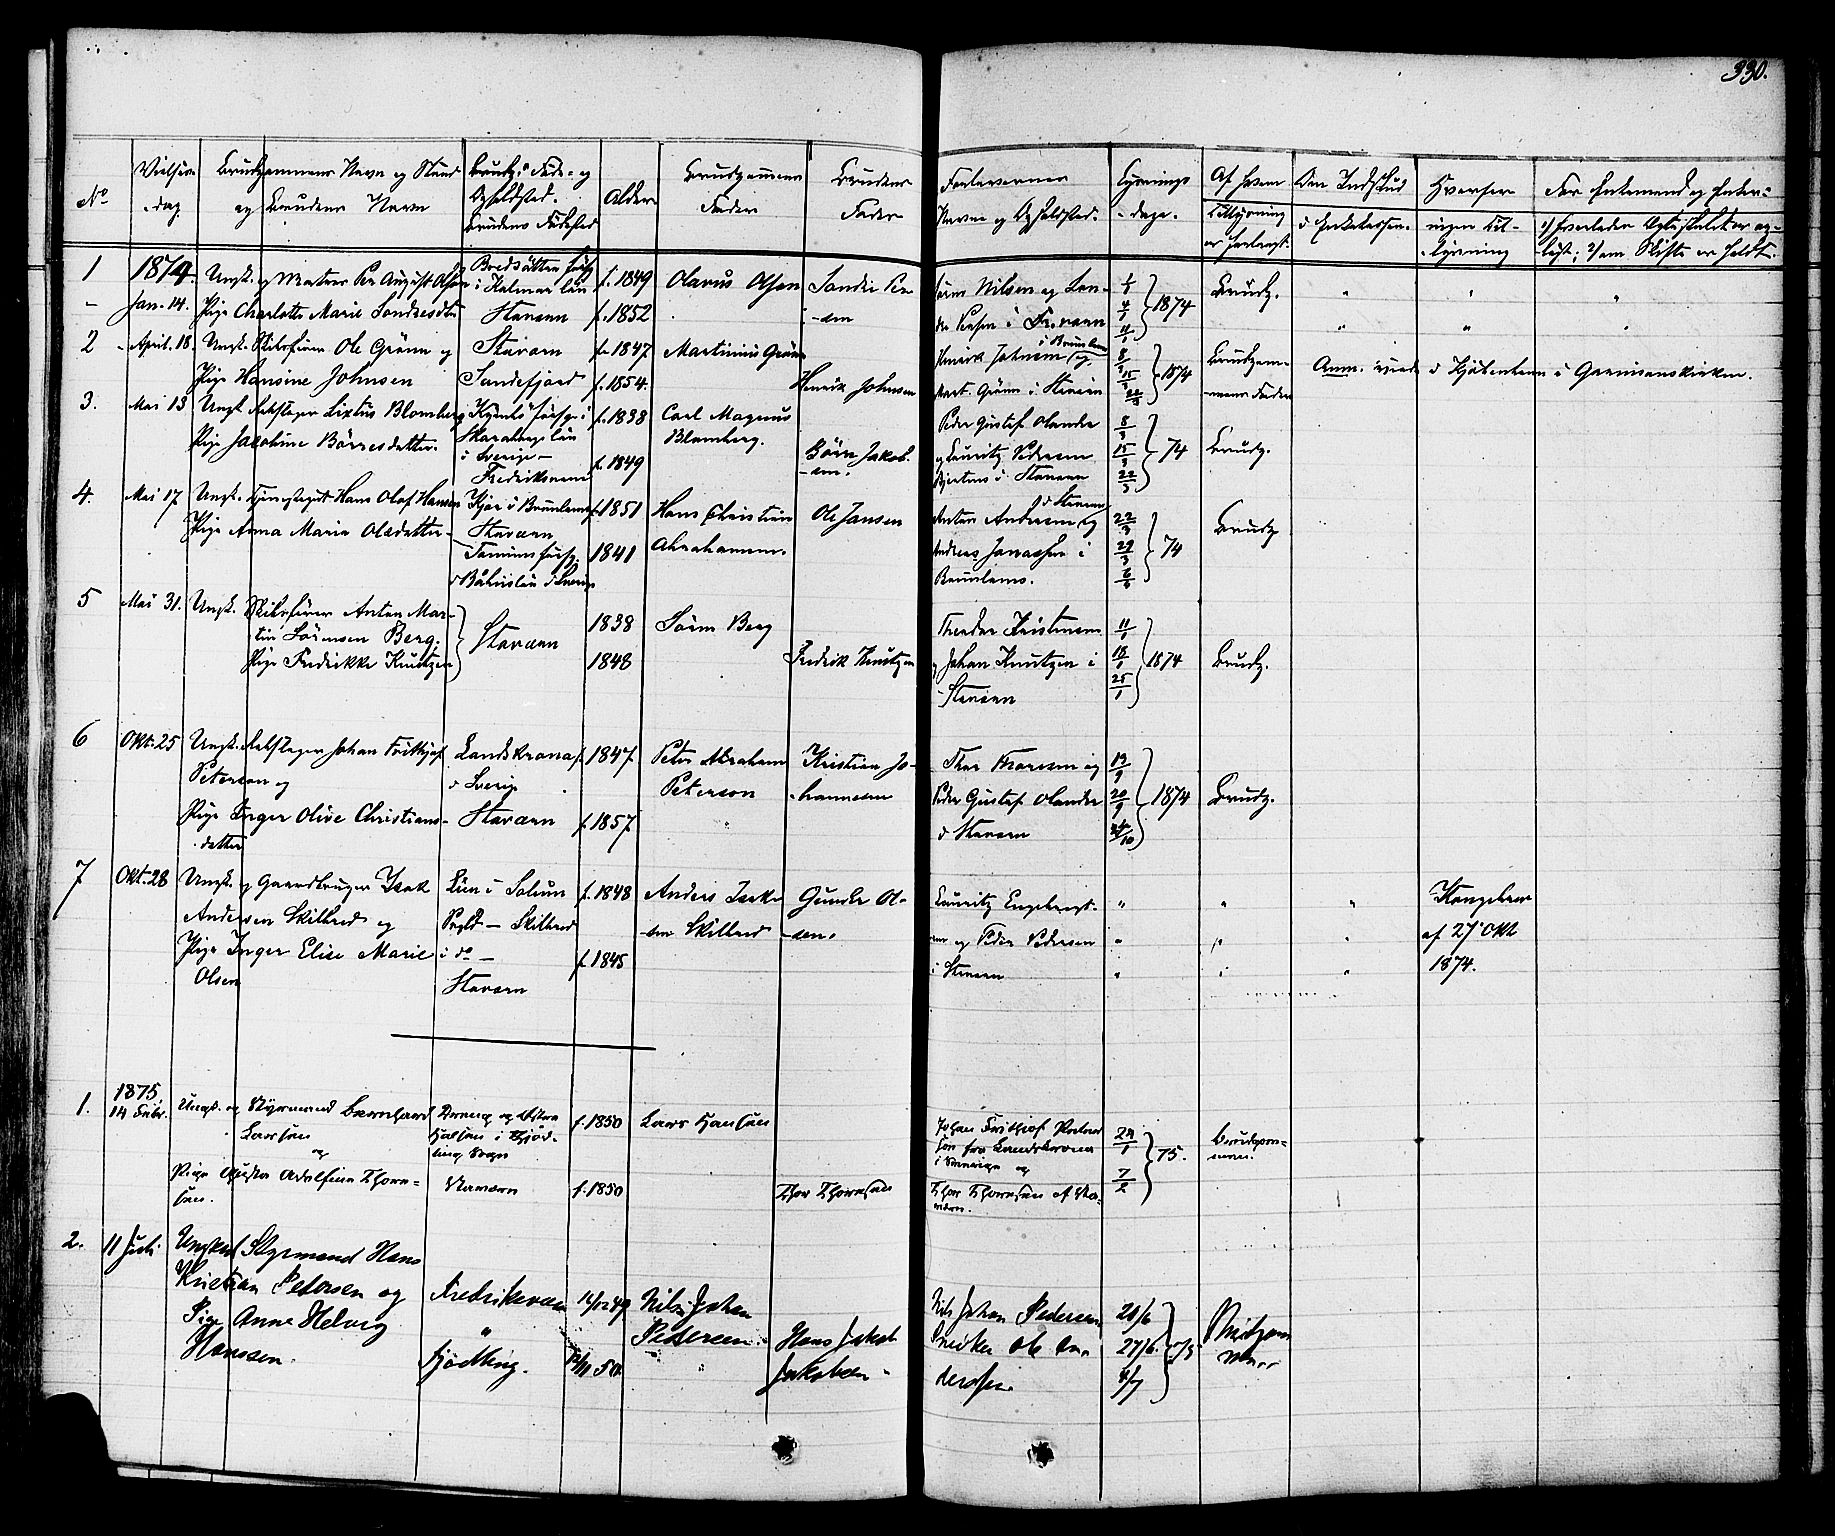 330.
No
Vielses-
dag
Brudgommens Navn og Stand
og Brudens Navn
Brudg.s Føde- og
Opholdsted.
Brudens Fødested
Alder
Brudgommens
Fader
Brudens
Fader
Forlovernes
Navne og Opholdsted.
Lysnings
- dage.
Af hvem
Tillysning
er forlangt.
Den Indskud
i Enkekassen.
Hvorfor
ingen Til-
lysning
For Enkemænd og Enker:
1) hvorledes
2) om Skifte er holdt.
1
1874.
Jan. 14.
Ungk. og Matros Per August Olsen
Pige Charlotte Marie Sondresdtr
i Kalmar län
Stavern
f. 1849
f. 1852
Olavus Olsen
Sondre Pe-
-sen
Nilsen og Son-
dre Pensen i Fr.værn
1874
Brudg.
2
April. 18.
Ungk. Skibsfører Ole Grønn og
Pige Hansine Johnsen
Stavern
Sandefjord
f. 1847
f. 1854.
Martinius Grønn
Henrik Johnsen
Henrik Johnsen i Brunlanes og
Mart. Grønn i Stavern
8/3
15/3
22/3
1874
Brudgom-
mens Fader
Anm. viede i Kjøbenhavn i Garnisonskirken.
3.
Mai 13
Ungk. Rebslager Sixtus Blomberg
Pige Jacobine Børresdatter.
Skaraborgs län
i Sverige -
Fredriksværn
f. 1838
f. 1849
Carl Magnus
Blomberg.
Børre Jakob-
-sen.
Peder Gustaf Olander
og Lauritz Pedersen
i Stavern
8/3
15/3
22/3
74
Brudg.
4.
Mai 17
Ungk. Hans Olaf Hansen
Pige Anna Maria Olsdatter
Kjær i Brunlanes
Stavern
i Båhuslän i Sverige
f. 1851
1841
Hans Christian
Abrahamsen.
Ole Jansen
i Stavern
Anton Andersen og
Andreas Jonassen i
Brunlanes.
22/3
29/3
6/4
74
Brudg
5
Mai 31.
Ungk. Skibsfører Anton Mar-
tin Sørensen Berg.
Pige Fredrikke Knutzen
Stavern
1838
1848
Søren Berg
Fredrik Knutzen
Theodor Kristensen
og Johan Knutzen i
Stavern
11/1
18/1
25/1
1874
Brudg.
6
Okt. 25
Ungk. Rebslager Johan Frithjof
Peterson og
Pige Inger Olive Christians-
datter
Landskrona
i Sverige
Stavern
f. 1847
f. 1857
Peter Abraham
Peterson
Kristian Jo-
hannesen
Thor Thoresen og
Peder Gustaf Olander
i Stavern
13/9
20/9
1874
Brudg.
7
Okt. 28
Ungk. og Gaardbruger Isak
Andersen Skilbred og
Pige Inger Elise Marie
Olsen
Lien i Solum
Prgld - Skilbred
i do -
Stavern
f. 1848
f. 1845
Anders Isak-
sen Skilbred
Gunder Ol-
-sen.
Lauritz Engebregt-
sen og Peder Pedersen
i Stavern
Kongebrev
af 27 Okt
1874.
1.
1875.
14 Febr.
Ungk. og Styrmand Bernhard
Larsen
og
Pige Gusta Adolfine Thorn-
sen.
i Tjød-
ling Sogn
Stavern
f. 1850
f. 1850
Lars Hansen
Thor Thornsen
Johan Frithjof Peter-
son fra Landskrona
i Sverrige og
Thor Thornsen af Sta-
værn.
24/1
7/2
75.
Brudgom-
men.
2.
11 Juli
Ungkarl Styrmand Hans
Kristian Petersen og
Pige Anne Helvig
Hanssen.
Fredriksværn
"
Tjødling.
49
50
Nils Johan
Pedersen.
Hans Jakob
Jakobsen
Nils Johan Pedersen
Snedker Ole An-
dersen.
20/6
27/6
4/7
75
Brudgom-
men